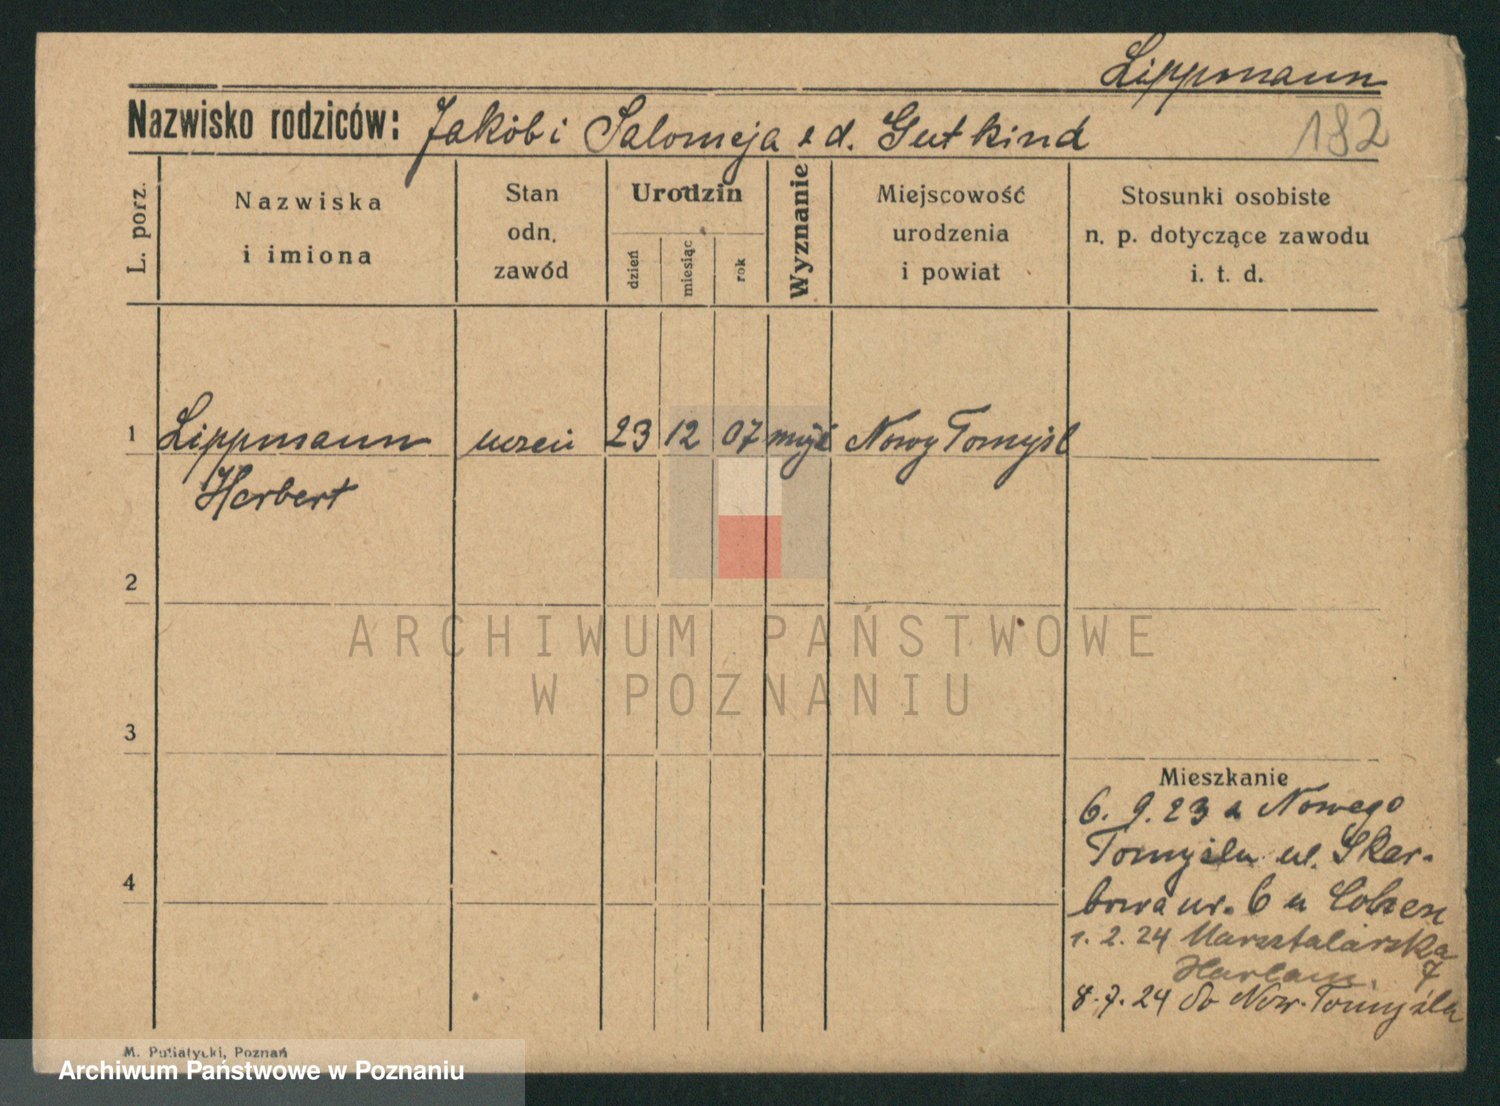 Lippmann
Nazwisko rodziców: Jakób i Salomeja z d. Gutkind
182
L. porz.
Nazwiska
i imiona
Stan
odn.
zawód
Urodzin
dzień
miesiąc
rok
Wyznanie
Miejscowość
urodzenia
i powiat
Stosunki osobiste
n. p. dotyczące zawodu
i. t. d.
1 Lippmann uczeń 23 12 07 mojż Nowy Tomyśl
Herbert
2
ARCHIWUM PAŃSTWOWE
W POZNANIU
3
Mieszkanie
6. 9. 23 z Nowego
Tomyśla ul. Skar-
4
bowa nr. 6 u Cohen
1. 2. 24 Marsztalarska
7
8. 7. 24 do Now. Tomyśla
M. Putiatycki, Poznań
Archiwum Państwowe w Poznaniu